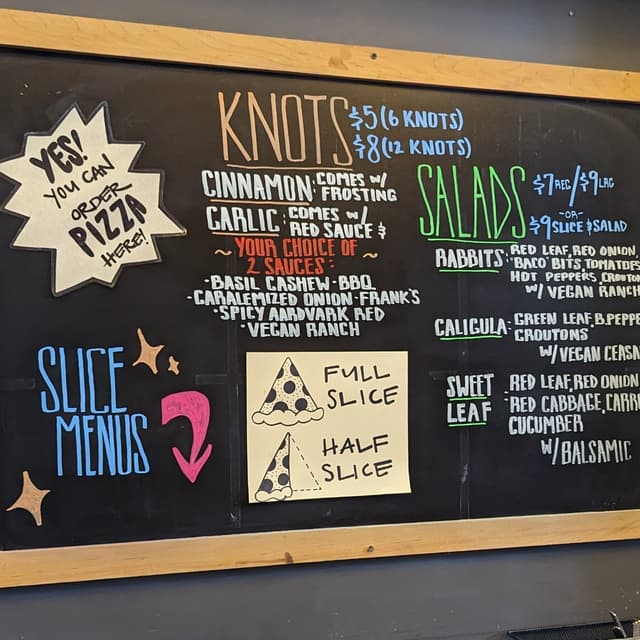 YES!
YOU CAN
ORDER
PIZZA
HERE!
KNOTS
$5 (6 KNOTS)
$8 (12 KNOTS)
CINNAMON: COMES W/
FROSTING
GARLIC: COMES W/
RED SAUCE &
~ YOUR CHOICE OF ~
2 SAUCES:
-BASIL CASHEW -BBQ
-CARALEMIZED ONION -FRANK'S
-SPICY AARDVARK RED
-VEGAN RANCH
SALADS
$7 REG / $9 LRG
-OR-
$9 SLICE & SALAD
RABBITS: RED LEAF, RED ONION,
BACO BITS, TOMATOES
HOT PEPPERS,
W/ VEGAN RANCH
CALIGULA: GREEN LEAF, B.PEPPE
CROUTONS
W/ VEGAN CEASA
SWEET
LEAF
RED LEAF, RED ONION
RED CABBAGE, CARR
CUCUMBER
W/ BALSAMIC
SLICE
MENUS
FULL
SLICE
HALF
SLICE